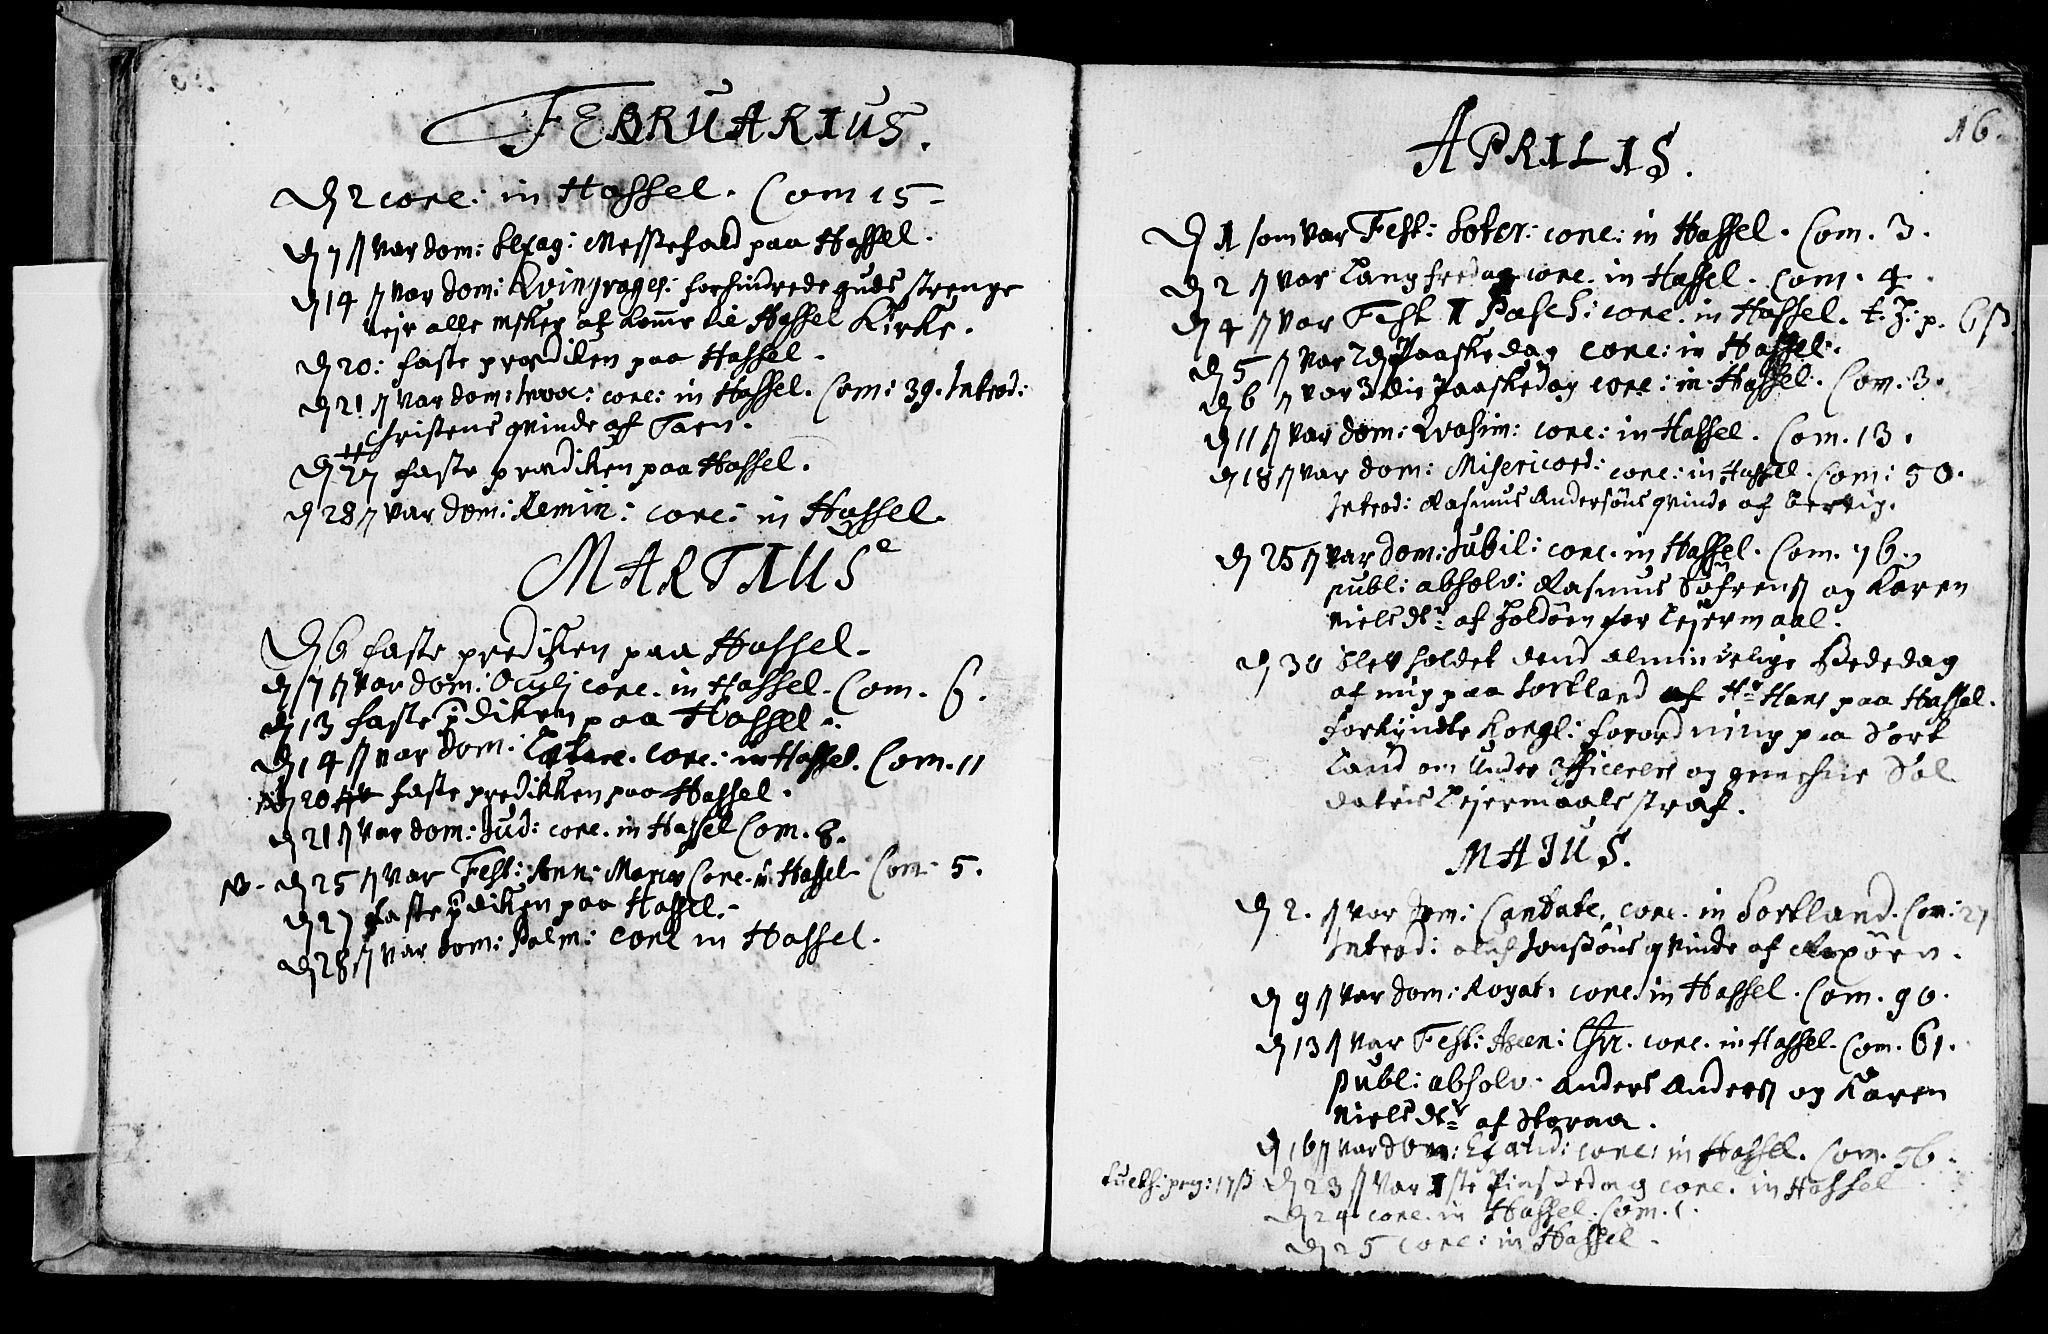 FEBRUARIUS.
D 2 conc: in Hassel. Com 15 -
D 7 s var dom: Sexag: Messefald paa Hassel.
D 14 s var dom: Qvinqvages: forhindrede guds strenge
vejr alle msker af komme til Hassel Kirke.
D 20: faste prædiken paa Hassel.
D 21 s var dom: Invoc: conc: in Hassel. Com: 39. Introd:
Christens qvinde af Taen.
D 27 faste prædiken paa Hassel.
D 28 s var dom: Remin: conc: in Hassel.
MARTIUS
D 6 faste prediken paa Hassel.
D 7 s var dom: Oculj conc. in Hassel. Com. 6.
D 13 faste pdiken paa Hassel.
D 14 s var dom: Lætare. conc: in Hassel. Com. 11
D 20 faste predikken paa Hassel.
D 21 s var dom: Jud: conc. in Hassel Com. 8.
NB - D 25 s var Fest: Ann: Mariæ Conc. in Hassel Com 5.
D 27 faste pdiken paa Hassel.
D 28 s var dom: Palm: conc in Hassel.
16.
APRILIS.
D 1 som var Fest: Soter: conc: in Hassel. Com. 3.
D 2 s var Langfredag conc. in Hassel. Com. 4.
D 4 s var Fest 1 Pasch: conc. in Hassel. t. Z: p. 6 ß
D 5 s var 2den Paaske dag conc: in Hassel.
D 6 s var 3die Paaskedag conc: in Hassel. Com. 3.
D 11 s var dom: Qvasim: conc: in Hassel. Com. 13.
D 18 s var dom: Misericord: conc: in Hassel. Com: 50.
Introd: Rasmus Andersøns qvinde af
D 25 s var dom: Jubil: conc. in Hassel. Com. 76.
publ: absolv: Rasmus Søfrens og Karen
Niels dtr af Holdøen for Lejermaal.
D 30 blev holdet dend almindelige Bededag
af mig paa Sortland af Hr Hans paa Hassel.
forkyndte Kongl: forordning paa Sort
land om Under Officerers og gemehne Sol
daters Lejermaals straf.
MAJUS.
D 2. s var dom: Cantate, conc. in Sortland. Com: 27
Introd: Oluf Jonsøns qvinde af
D 9 s var dom: Rogat: conc. in Hassel. Com. 90.
D 13 s var Fest: Ascen: Chr. conc. in Hassel. Com. 61.
Publ: absolv. Anders Anders og Karen
Niels dtr af Storaa.
D 16 s var dom: Exaud: conc: in Hassel. Com. 56.
D 23 s var 1ste Pinsdedag conc. in Hassel
D 24 conc. in Hassel. Com. 1.
D 25 conc: in Hassel.